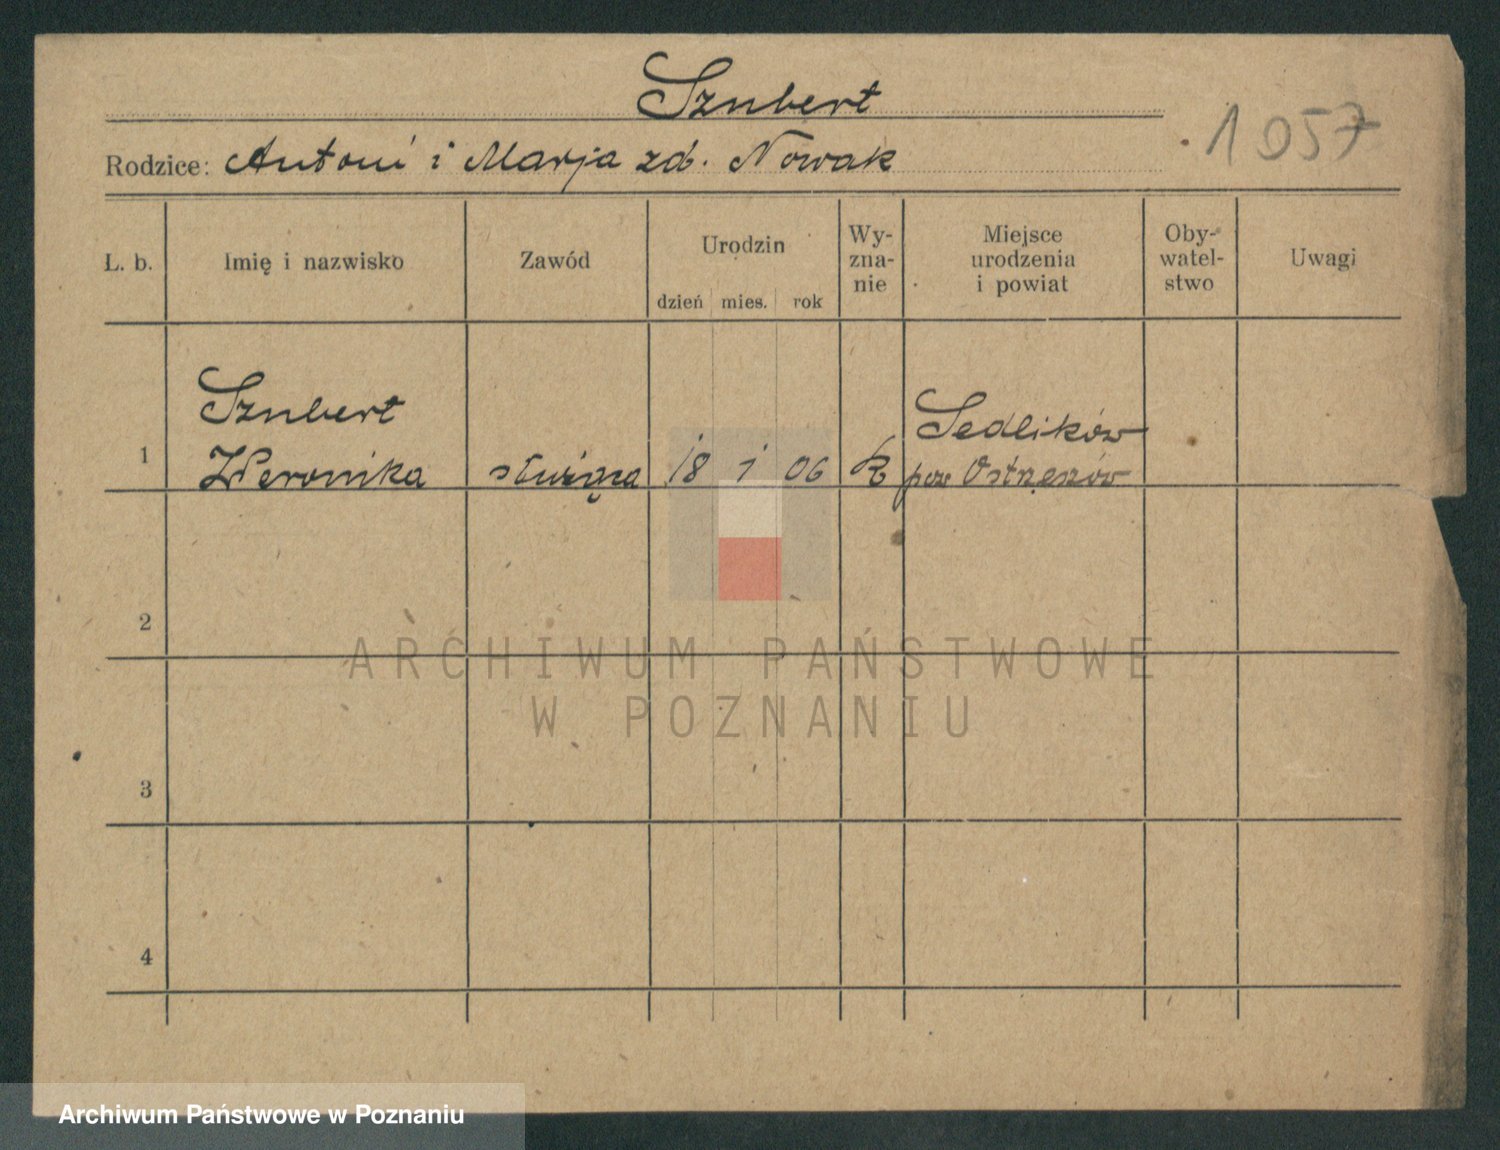 Sznbert
1057
Rodzice: Antoni i Marja zd. Nowak
L. b.
Imię i nazwisko
Zawód
Urodzin
dzień mies. rok
Wy-
zna-
nie
Miejsce
urodzenia
i powiat
Oby-
watel-
stwo
Uwagi
1
Sznbert
Weronika
służąca
18 1 06
k
Sedlików
pow Ostrzeszów
2
3
4
ARCHIWUM PAŃSTWOWE
W POZNANIU
Archiwum Państwowe w Poznaniu